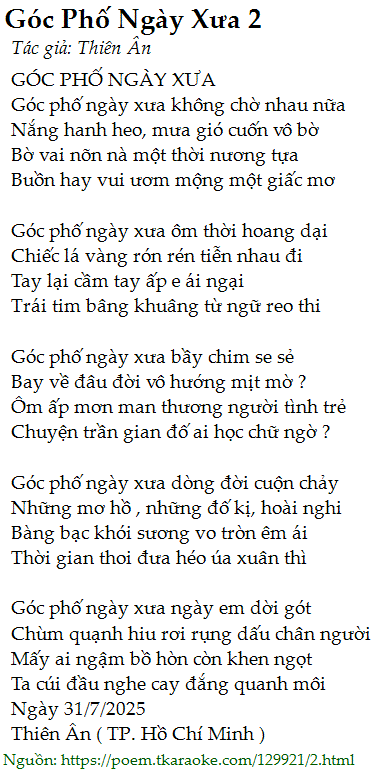 Góc Phố Ngày Xưa 2
Tác giả: Thiên Ân
GÓC PHỐ NGÀY XƯA
Góc phố ngày xưa không chờ nhau nữa
Nắng hanh heo, mưa gió cuốn vô bờ
Bờ vai nõn nà một thời nương tựa
Buồn hay vui ươm mộng một giấc mơ

Góc phố ngày xưa ôm thời hoang dại
Chiếc lá vàng rón rén tiễn nhau đi
Tay lại cầm tay ấp e ái ngại
Trái tim bâng khuâng từ ngữ reo thi

Góc phố ngày xưa bầy chim se sẻ
Bay về đâu đời vô hướng mịt mờ ?
Ôm ấp mơn man thương người tình trẻ
Chuyện trần gian đố ai học chữ ngờ ?

Góc phố ngày xưa dòng đời cuộn chảy
Những mơ hồ , những đố kị, hoài nghi
Bàng bạc khói sương vo tròn êm ái
Thời gian thoi đưa héo úa xuân thì

Góc phố ngày xưa ngày em dời gót
Chùm quạnh hiu rơi rụng dấu chân người
Mấy ai ngậm bồ hòn còn khen ngọt
Ta cúi đầu nghe cay đắng quanh môi
Ngày 31/7/2025
Thiên Ân ( TP. Hồ Chí Minh )
Nguồn: https://poem.tkaraoke.com/129921/2.html